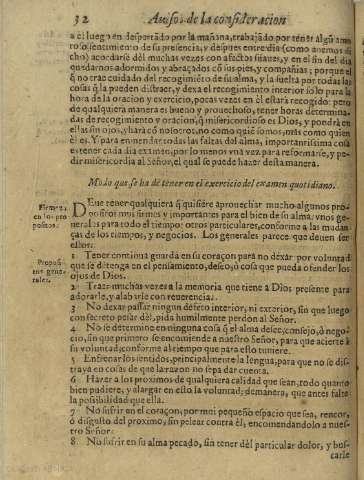 32 Auisos de la consideracion
a el luego en despertado por la mañana, trabajado por tener algũ amo
roso sentimiento de su presencia, y despues entre dia (como auemos di
cho) acordarse dèl muchas vezes con afectos suaues, y en el fin del dia
quedarnos adormidos y abraçados cõ sus pies, y compañias; porque el
q̃ no trae cuidado del recogimiẽto de su alma, y la suelta por todas las
cosas q̃ la pueden distraer, y dexa el recogimiento interior solo para la
hora de la oracion y exercicio, pocas vezes en èl estarà recogido: pero
de qualquiera manera es bueno y prouechoso, tener horas determina-
das de recogimiento y oracion, q̃ misericordioso es Dios, y pondrà en
ellas sin ojos, y harà cõ nosotros, no como quiẽ somos, mas como quien
èl es. Y para enmendar todas las faltas del alma, importantissima cosa
es tener cada dia examen, por lo menos vna vez para reformarse, y pe-
dir misericordia al Señor, el qual se puede hazer desta manera.
Modo que se ha de tener en el exercicio del examen quotidiano.
Firmes
en los pro
positos.
DEue tener qualquiera q̃ quisiere aprouechar mucho algunos pro-
positos muy firmes y importantes para el bien de su alma: vnos ge-
nerales para todo el tiempo: otros particulares, conforme a las mudan
ças de los tiempos, y negocios. Los generales parece que deuen ser
estos.
Proposi-
tos gene-
rales.
1 Tener continua guarda en su coraçon para no dexar por voluntad
que se detenga en el pensamiento, deseo, ò cosa que pueda ofender los
ojos de Dios.
2 Traer muchas vezes a la memoria que tiene a Dios presente para
adorarle, y alabarle con reuerencia.
3 No dexar passar ningun defeto interior, ni exterior, sin que luego
con secreto pesar dèl, pida humilmente perdon al Señor.
4 No se determine en ninguna cosa q̃ el alma desee, consejo, ò nego-
cio, sin que primero se encomiende a nuestro Señor, para que acierte à
su voluntad, conforme al tiempo que para esto tuuiere.
5 Enfrenar los sentidos, principalmente la lengua, para que no se dis-
traya en cosas de que la razon no sepa dar cuenta.
6 Hazer a los proximos de qualquiera calidad que sean, todo quanto
bien pudiere, y alargar en esto la voluntad; demanera, que antes falte
la possibilidad que ella.
7 No sufrir en el coraçon, por mui pequeño espacio que sea, rencor,
ò disgusto del proximo, sin pelear contra èl, encomendandolo a nues-
tro Señor.
8 No sufrir en su alma pecado, sin tener dèl particular dolor, y bus-
carle